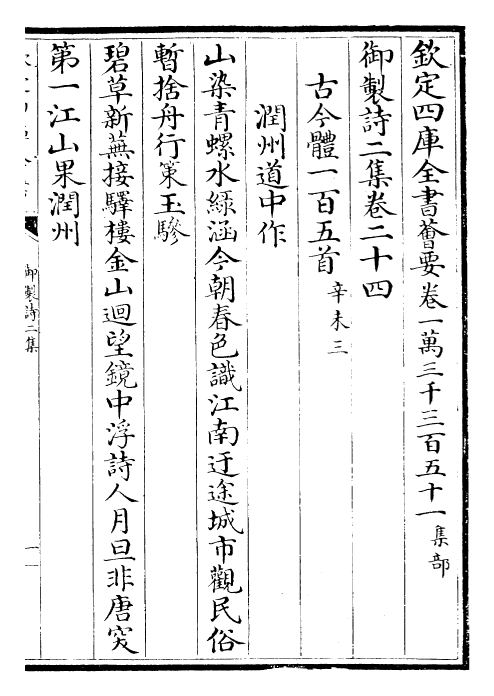 欽定四庫全書薈要卷一萬三千三百五十一集部
御製詩二集卷二十四
古今體一百五首辛未三
潤州道中作
山染青螺水綠涵今朝春色識江南迂途城市觀民俗
暫捨舟行策玉驂
碧草新蕪接驛樓金山迴望鏡中浮詩人月旦非唐突
第一江山果潤州
御製詩二集